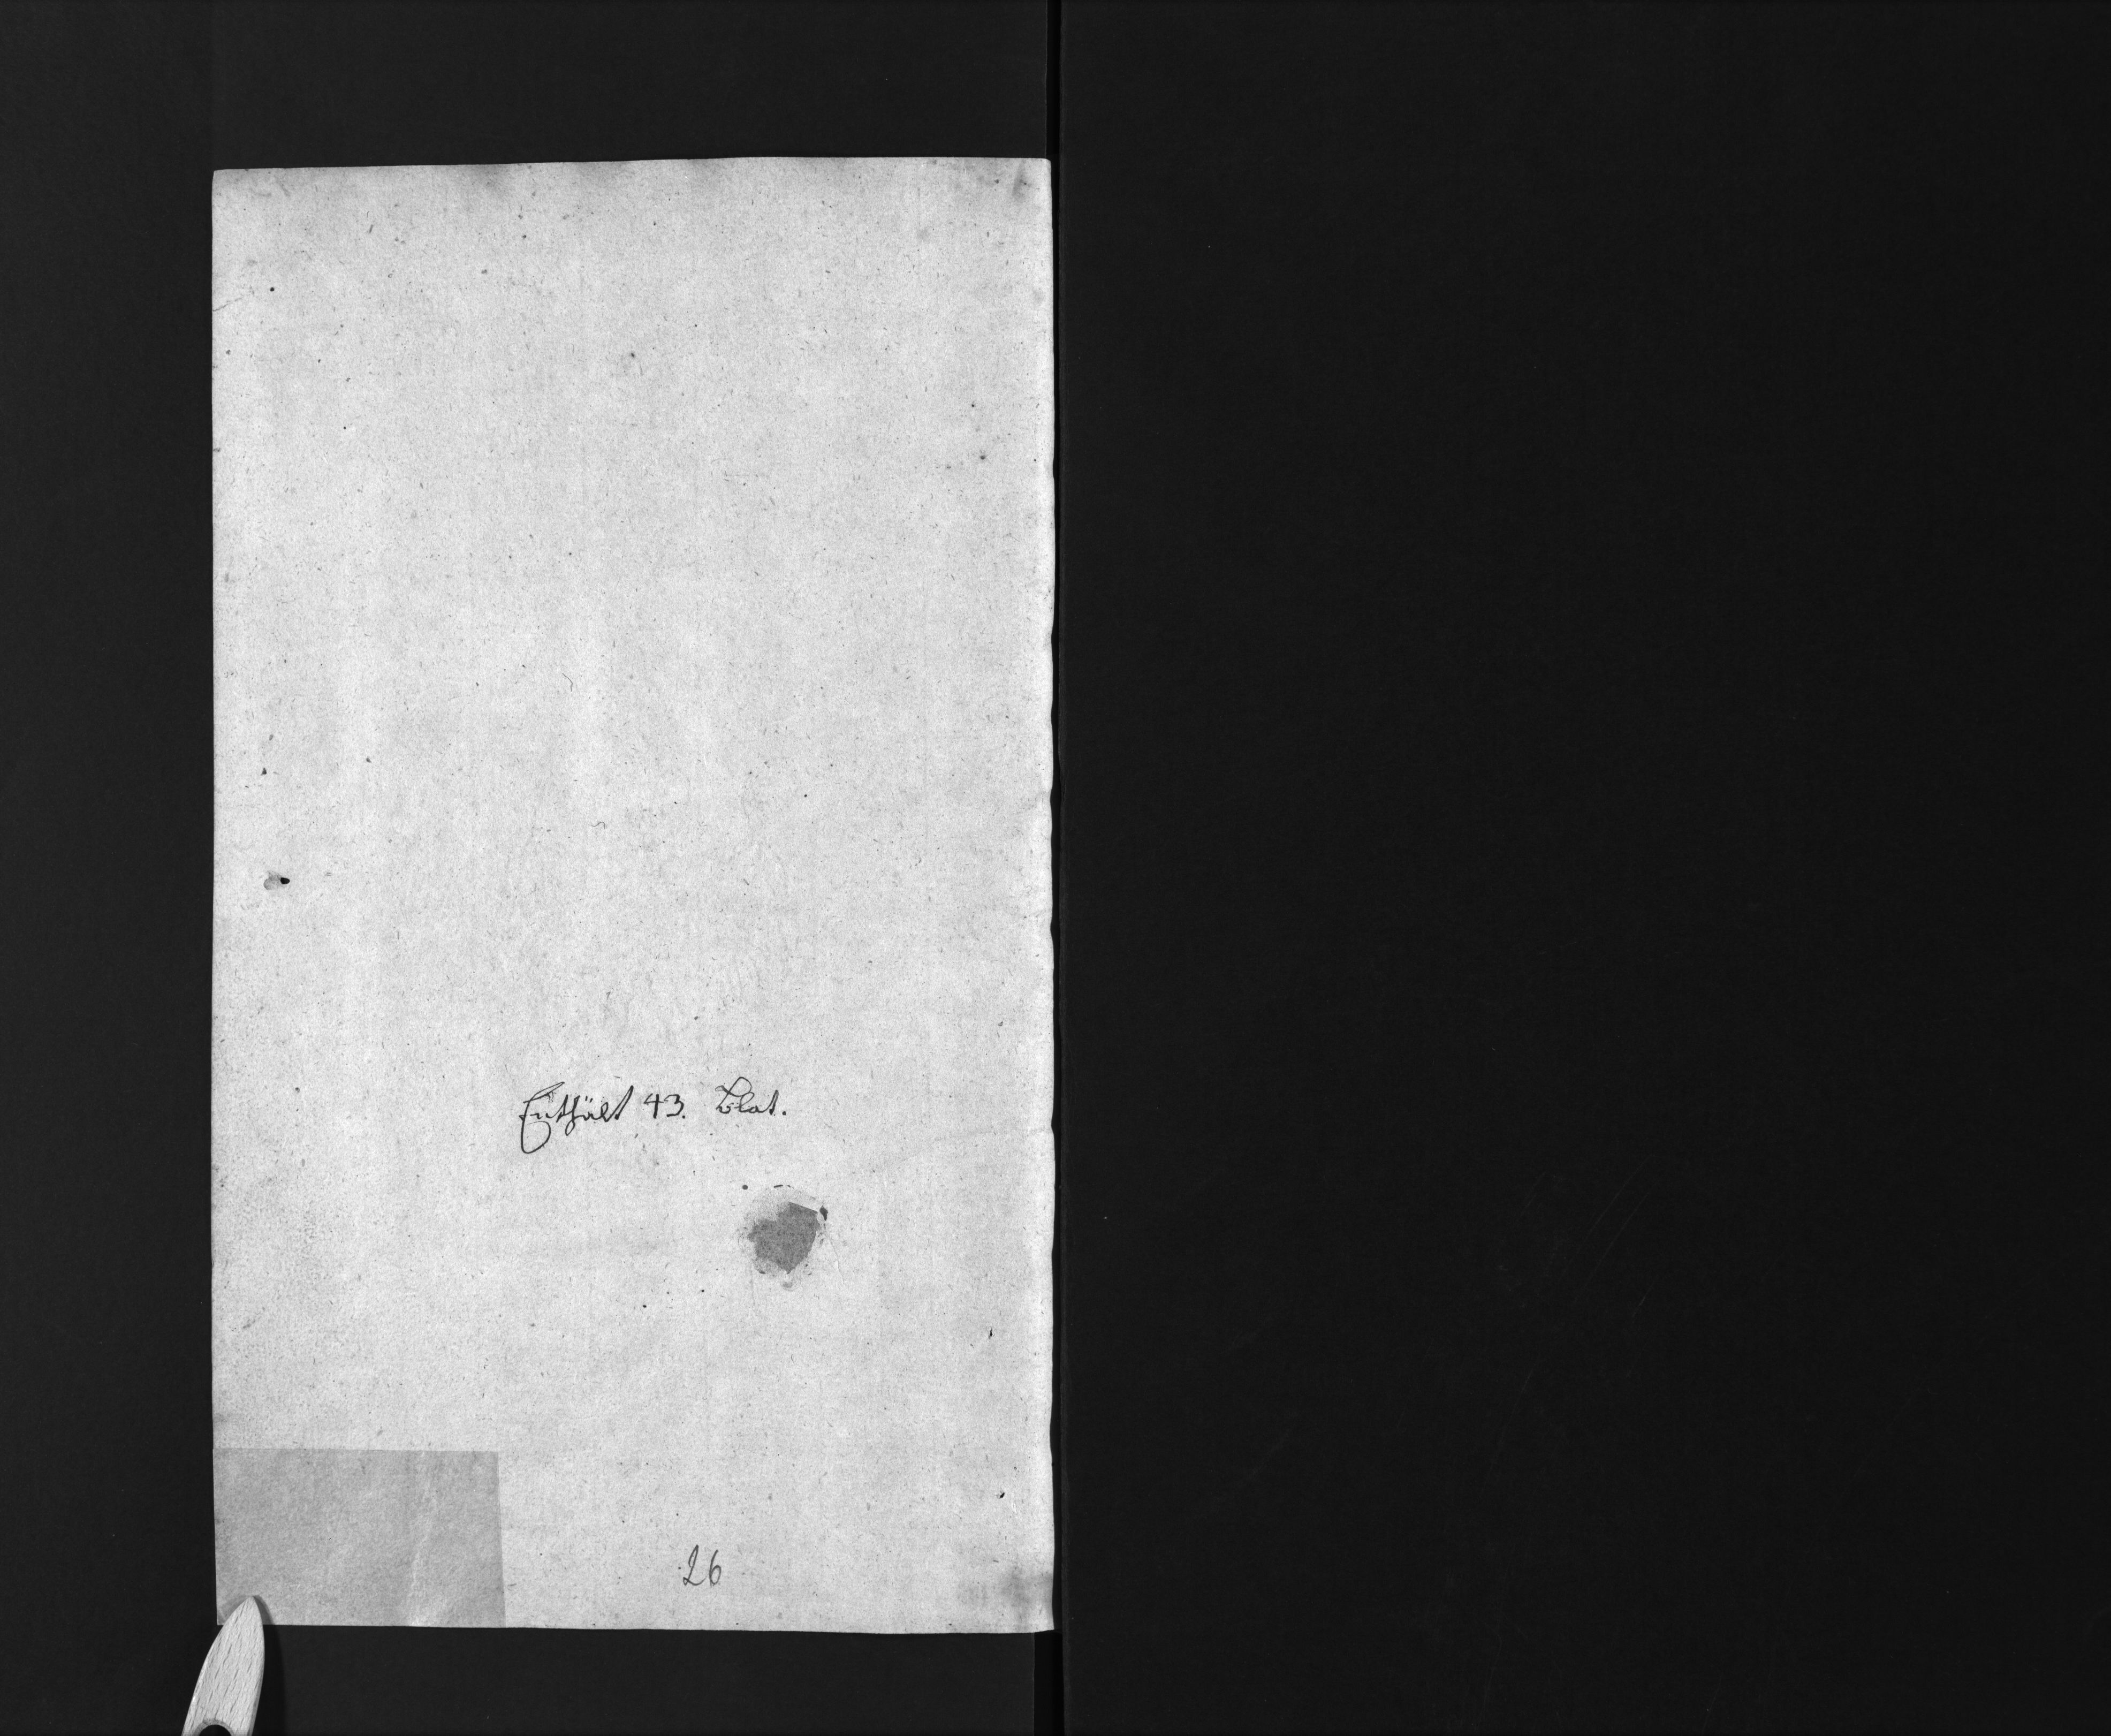 Enthält 43. Blat.
26